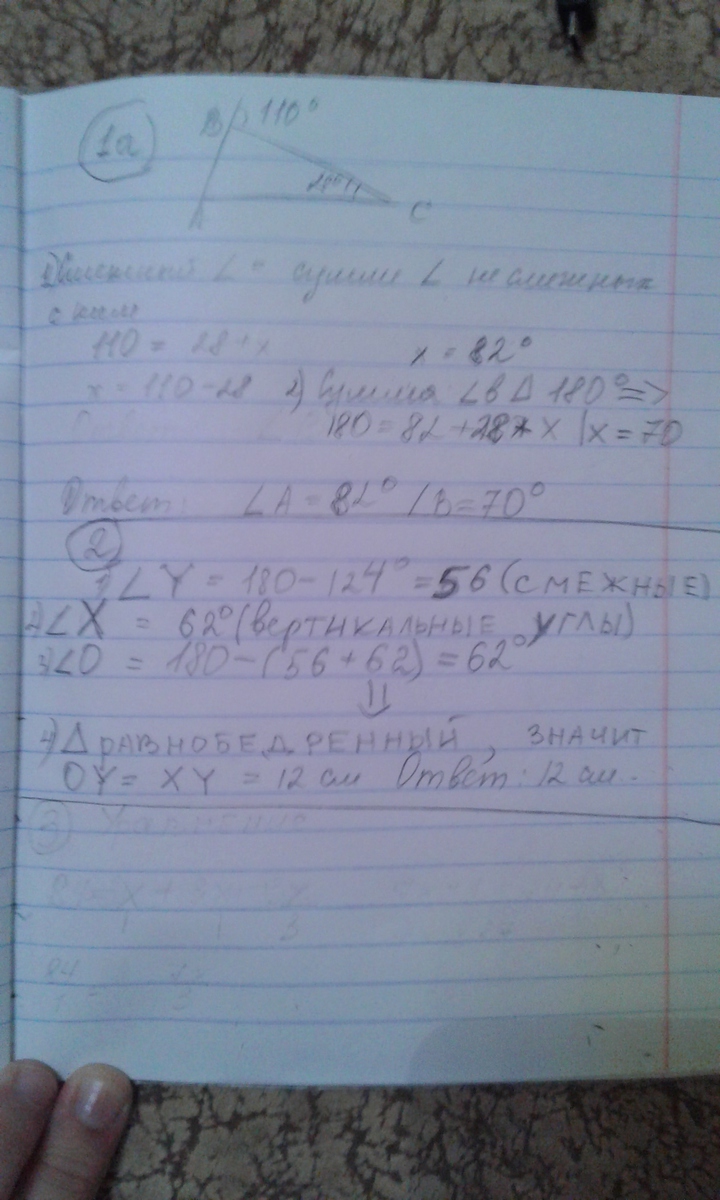 1а
B 110°
28°
A C
1) Смежный ∠ = сумме ∠ не смежных
с ним
110 = 28 + x x = 82°
x = 110 - 28 2) Сумма ∠ в Δ 180° =>
180 = 82 + 28 + x | x = 70
Ответ: ∠A = 82° ∠B = 70°
2
1) ∠Y = 180 - 124° = 56 (СМЕЖНЫЕ)
2) ∠X = 62° (ВЕРТИКАЛЬНЫЕ УГЛЫ)
3) ∠O = 180 - (56 + 62) = 62°
4) Δ РАВНОБЕДРЕННЫЙ, ЗНАЧИТ
OY = XY = 12 см Ответ: 12 см.
3 Уравнение